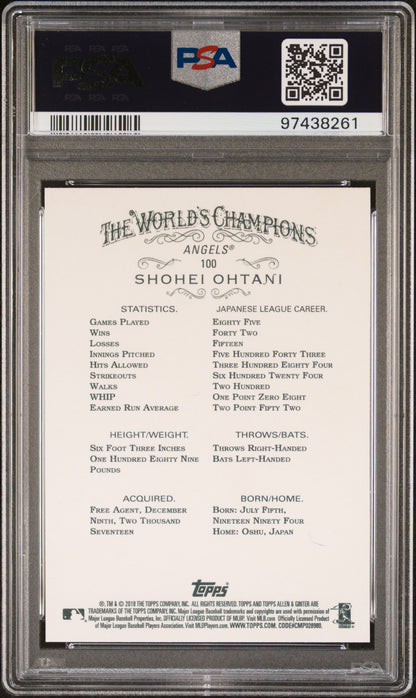 PSA
PSA PSA PSA
PSA
97438261
THE WORLD'S CHAMPIONS
ANGELS®
100
SHOHEI OHTANI
STATISTICS. JAPANESE LEAGUE CAREER.
GAMES PLAYED EIGHTY FIVE
WINS FORTY TWO
LOSSES FIFTEEN
INNINGS PITCHED FIVE HUNDRED FORTY THREE
HITS ALLOWED THREE HUNDRED EIGHTY FOUR
STRIKEOUTS SIX HUNDRED TWENTY FOUR
WALKS TWO HUNDRED
WHIP ONE POINT ZERO EIGHT
EARNED RUN AVERAGE TWO POINT FIFTY TWO
HEIGHT/WEIGHT.
SIX FOOT THREE INCHES
ONE HUNDRED EIGHTY NINE
POUNDS
THROWS/BATS.
THROWS RIGHT-HANDED
BATS LEFT-HANDED
ACQUIRED.
FREE AGENT, DECEMBER
NINTH, TWO THOUSAND
SEVENTEEN
BORN/HOME.
BORN: JULY FIFTH,
NINETEEN NINETY FOUR
HOME: OSHU, JAPAN
Topps
®, TM & © 2018 THE TOPPS COMPANY, INC. ALL RIGHTS RESERVED. TOPPS AND TOPPS ALLEN & GINTER ARE
TRADEMARKS OF THE TOPPS COMPANY, INC. Major League Baseball trademarks and copyrights are used with permission of
Major League Baseball Properties, Inc. OFFICIALLY LICENSED PRODUCT OF MLBP. Visit MLB.com Officially Licensed Product
of Major League Baseball Players Association. Visit MLBPlayers.com. WWW.TOPPS.COM. CODE#CMP028980.